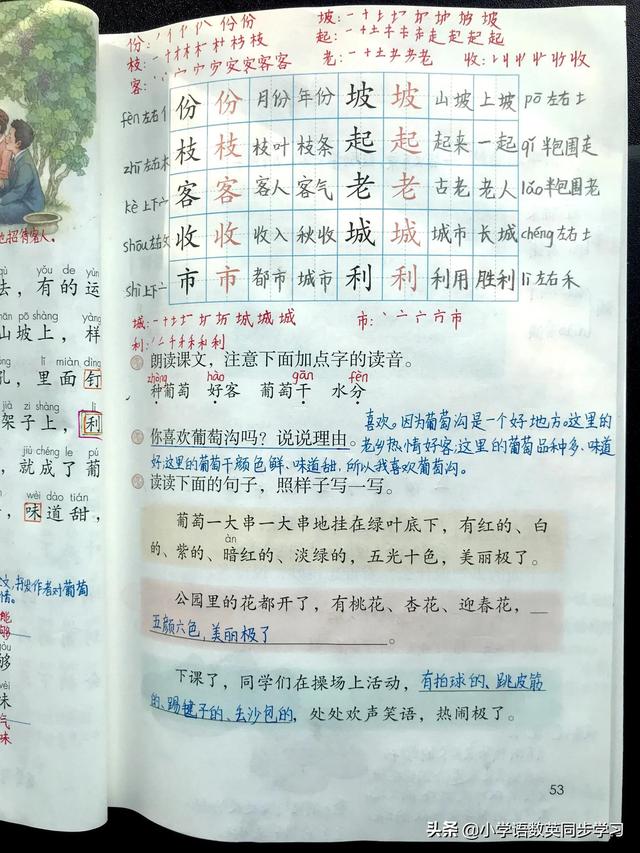 份: 份份
坡: 坡
枝: 枝
起: 起起起
客: 客客
老: 老
收: 收收
fèn 左右 亻 份 份 月份 年份 坡 坡 山坡 上坡 pō 左右 土
zhī 左右 木 枝 枝 枝叶 枝条 起 起 起来 一起 qǐ 半包围 走
kè 上下 宀 客 客 客人 客气 老 老 古老 老人 lǎo 半包围 老
shōu 左右 攵 收 收 收入 秋收 城 城 城市 长城 chéng 左右 土
shì 上下 亠 市 市 都市 城市 利 利 利用 胜利 lì 左右 禾
城: 城城城
市: 市
利: 利
朗读课文，注意下面加点字的读音。
zhòng hào gān fèn
种葡萄 好客 葡萄干 水分
你喜欢葡萄沟吗？说说理由。
喜欢。因为葡萄沟是一个好地方。这里的
老乡热情好客;这里的葡萄品种多、味道
好;这里的葡萄干颜色鲜、味道甜，所以我喜欢葡萄沟。
读读下面的句子，照样子写一写。
葡萄一大串一大串地挂在绿叶底下，有红的、白
àn
的、紫的、暗红的、淡绿的，五光十色，美丽极了。
公园里的花都开了，有桃花、杏花、迎春花，
五颜六色，美丽极了。
下课了，同学们在操场上活动，有拍球的、跳皮筋
的、踢毽子的、丢沙包的，处处欢声笑语，热闹极了。
53
也招待客人。
yǒu de yùn
去，有的运
shān pō shàng yàng
山坡上，样
kǒng lǐ miàn dīng
孔，里面钉
jià zi shàng lì
架子上，利
jiù chéng le pú
，就成了葡
wèi dào tián
，味道甜，
作者对葡萄
情。
能
够
gòu
够
wèi
味
气
味
头条 @小学语数英同步学习